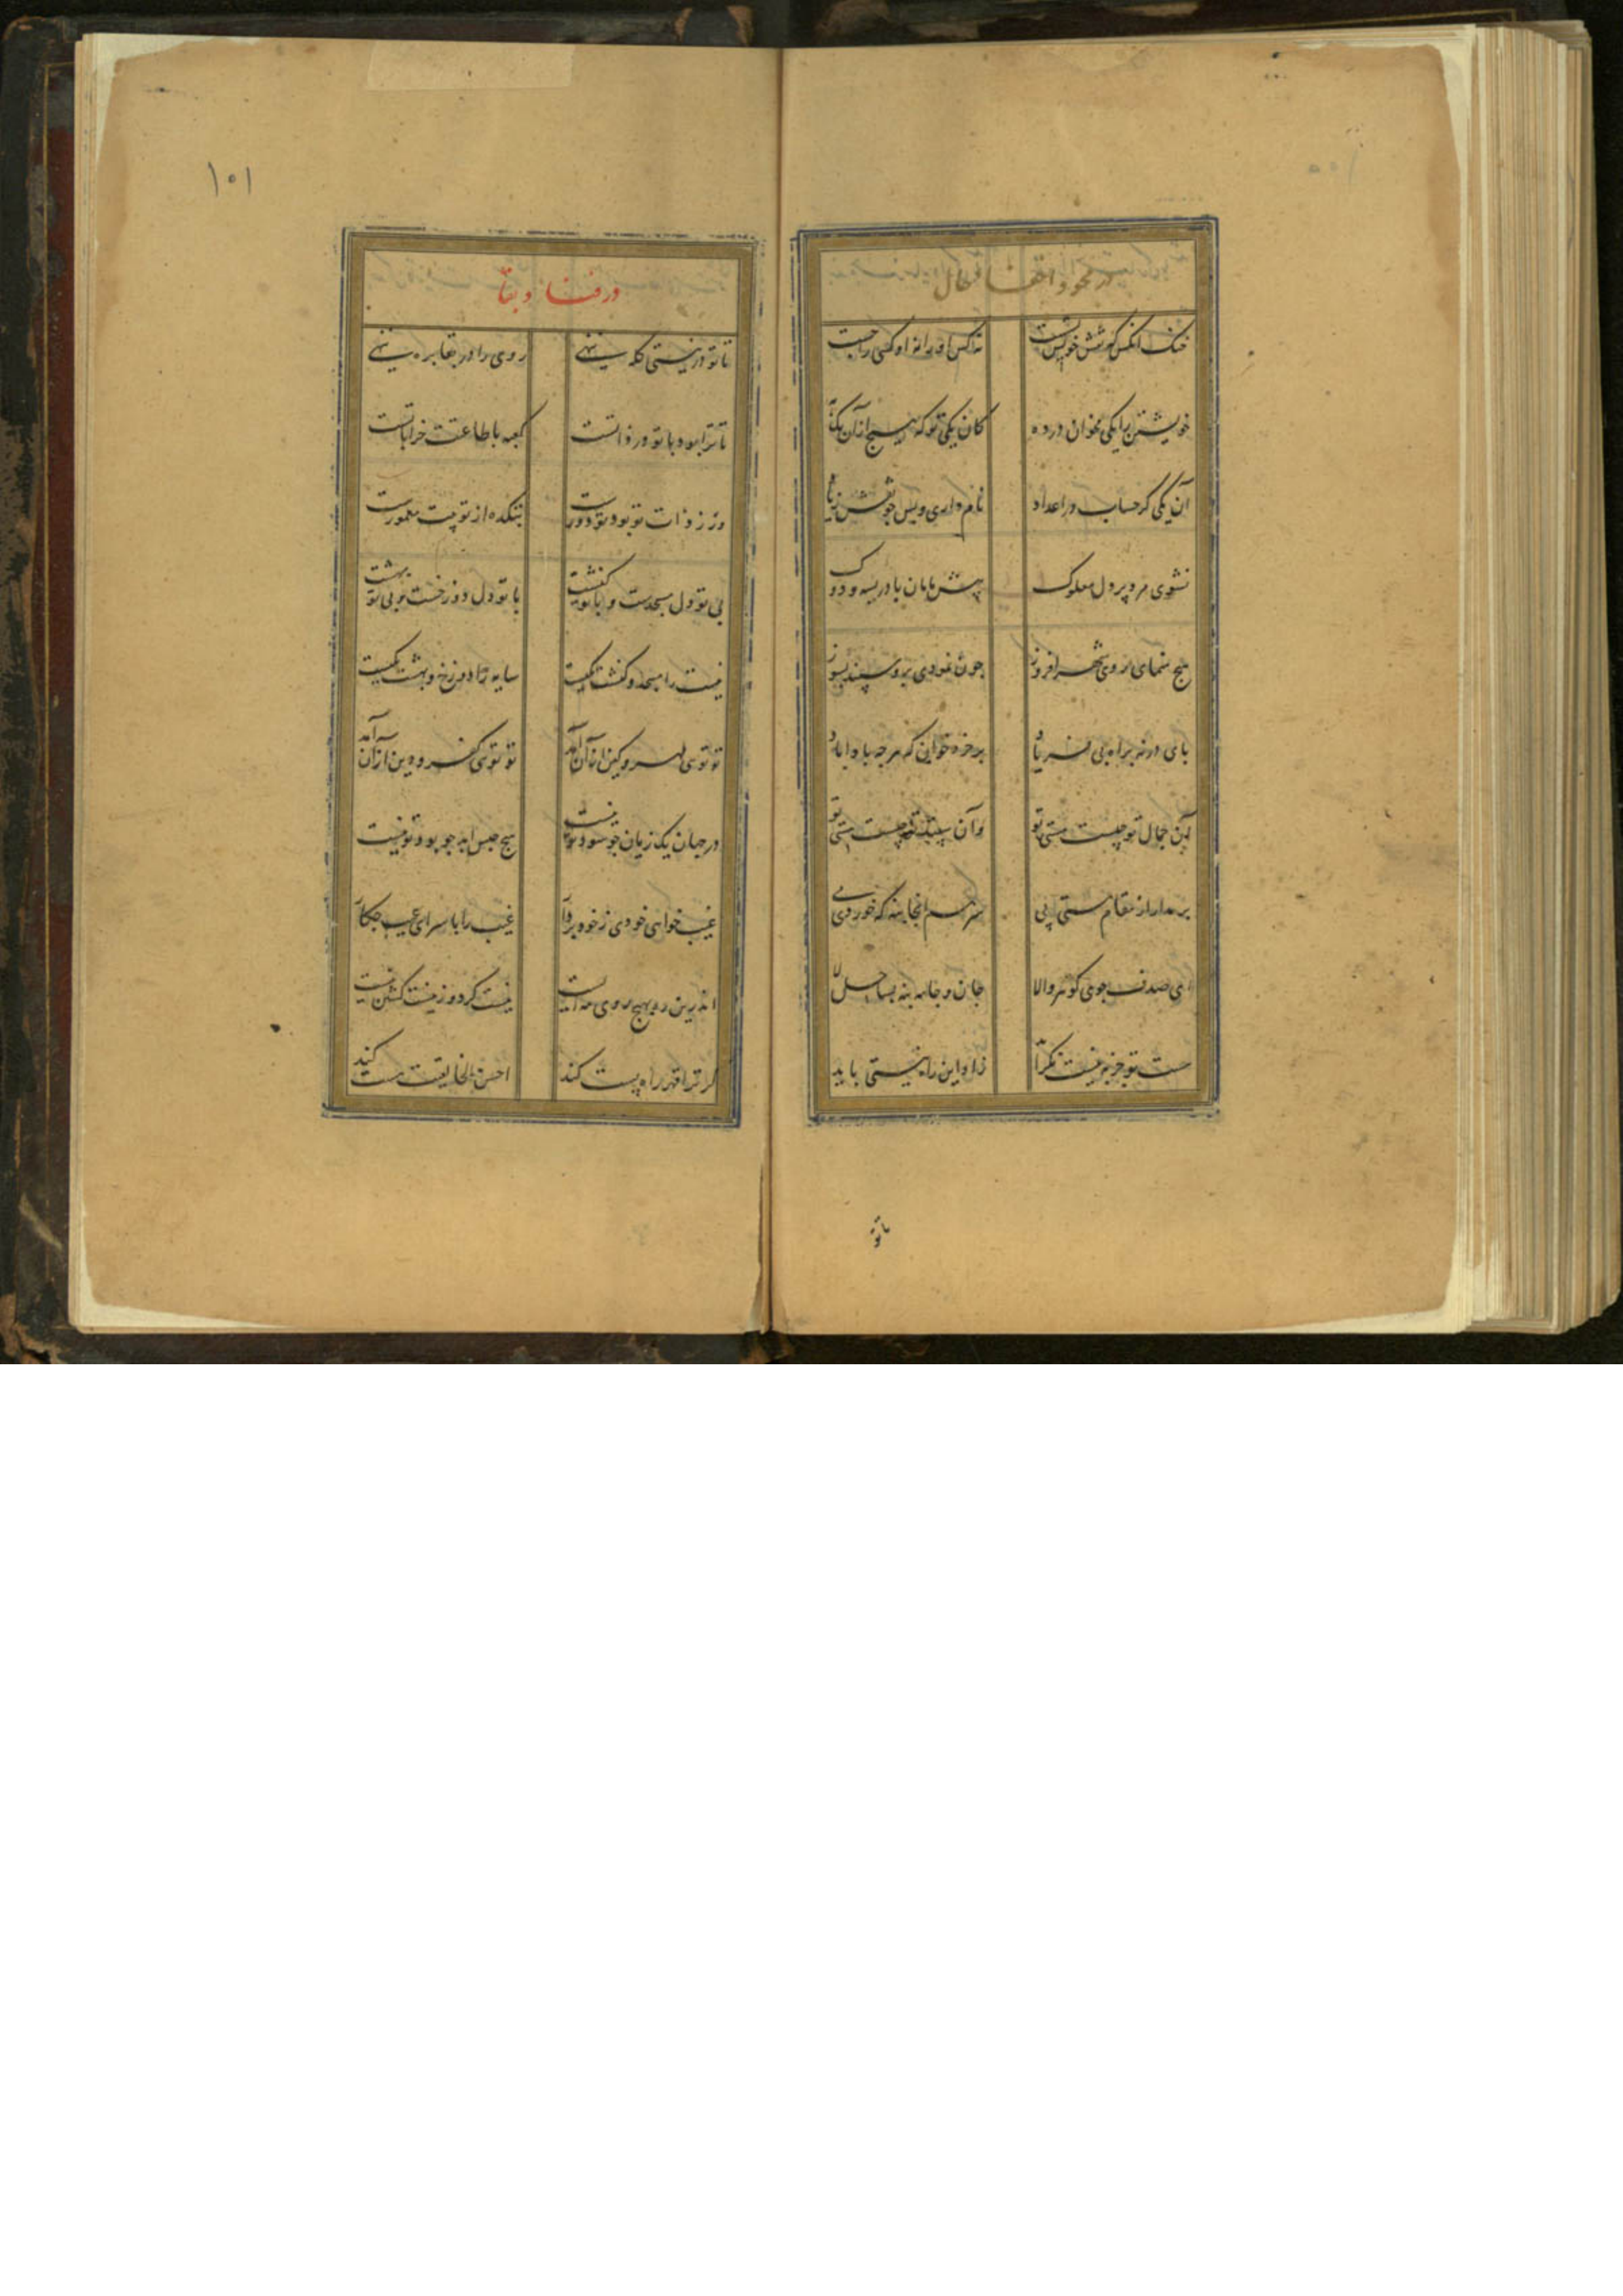 در محو و
خنک آنکس که نقش خویش بشست نه کس او را نه او کسی را جست
خویشتن را یکی مخوان در ده کان یکی تو که هیچ از آن یک به
آن یکی کز حساب در اعداد نام داری و لیس چو نقش
نشوی مرد پر دل مملوک پیش مامان بادریسه و دوک
هیچ منمای روی شهر افروز چون نمودی برو سپند بسوز
بای در نه براه بی فریاد
آن جمال تو چیست مستی تو وآن سپند تو چیست هستی تو
بر مدار از مقام مستی پی سر هم انجا بنه که خوردی می
ای صدف جوی گوهر والا جان و جامه بنه بساحل لا
هست جز نیست زاد این راه نیستی باید
تاتو
۱۰۱
در فنا و بقا
تا تو در نیستی کله ننهی روی را در بقا بره ننهی
تا ترا بود با تو در ذاتست کعبه با طاعتت خراباتست
ور ز ذات تو بود تو دورست بتکده از تو بیت معمورست
بی تو دل مسجدست و با تو کنشت با تو دل دوزخست و بی تو بهشت
نیست را مسجد و کنشت یکیست سایه را دوزخ و بهشت یکیست
تو توی مهر و کین ازان آمد تو توی کفر و دین ازان آمد
در جهان یک زیان چو سود تو نیست هیچ حبس ابد چو بود تو نیست
غیب خواهی خودی ز خود بردار غیب را با سرای عیب چکار
اندرین ره بهیچ روی مه ایست نیست گرد و ز نیست گشتن نیست
گر ترا قهر راه پست کند احسن الخالقینت هست کند